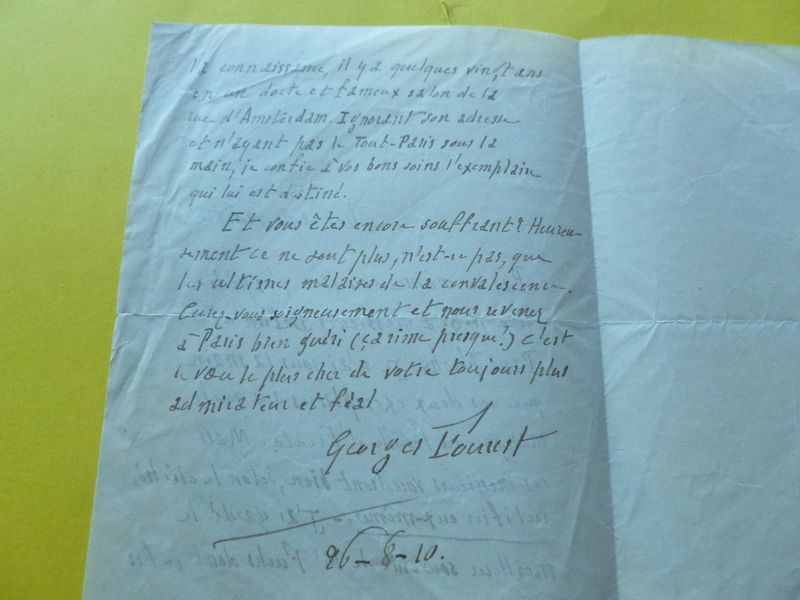 sa connaissance, il y a quelques vingt ans
en un docte et fameux salon de la
rue d'Amsterdam. Ignorant son adresse
et n'ayant pas le Tout-Paris sous la
main, je confie à vos bons soins l'exemplaire
qui lui est destiné.
Et vous êtes encore souffrant? Heureu-
sement ce ne sont plus, n'est-ce pas, que
les ultimes malaises de la convalescence.
Curez-vous soigneusement et nous revenez
à Paris bien guéri (ça rime presque!) C'est
le vœu le plus cher de votre toujours plus
admirateur et féal
Georges Fourest
26-8-10.